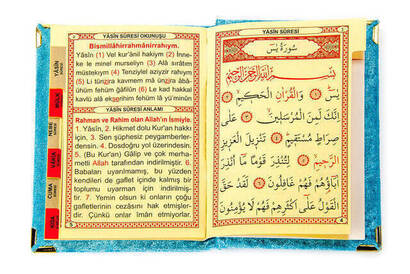 YÂSÎN SÛRESİ OKUNUŞU
Bismillâhirrahmânirrahîym.
Yâsîn (1) Vel kur'ânil hakîym (2) İnne-
ke le minel murselîyn (3) Alâ sırâtım
müstekıym (4) Tenzîylel azîyzir rahıym
(5) Li tünzira kavmem mâ ünzira âbâ-
ühüm fehüm ğâfilûn (6) Le kad hakkal
kavlü alâ ekserihim fehüm lâ yü'minûn
YÂSÎN SÛRESİ ANLAMI
Rahman ve Rahim olan Allah'ın İsmiyle.
1. Yâsîn, 2. Hikmet dolu Kur'an hakkı
için, 3. Sen şüphesiz peygamberler-
densin. 4. Dosdoğru yol üzerindesin.
5. (Bu Kur'an) Gâlip ve çok merha-
metli Allah tarafından indirilmiştir. 6.
Babaları uyarılmamış, bu yüzden
kendileri de gaflet içinde kalmış bir
toplumu uyarman için indirilmiş-
tir. 7. Yemin olsun ki onların çoğu
gafletlerinin cezâsını hak etmişler-
dir. Çünkü onlar îman etmiyorlar.
YÂSÎN
MÜLK
NEBE
CUMA
YÂSÎN SÛRESİ
سُورَةُ يٰسٓ
بِسْمِ اللّٰهِ الرَّحْمٰنِ الرَّحِيمِ
يٰسٓ ﴿١﴾ وَالْقُرْاٰنِ الْحَكِيمِ ﴿٢﴾
اِنَّكَ لَمِنَ الْمُرْسَلِينَ ﴿٣﴾ عَلٰى
صِرَاطٍ مُسْتَقِيمٍ ﴿٤﴾ تَنْزِيلَ الْعَزِيزِ
الرَّحِيمِ ﴿٥﴾ لِتُنْذِرَ قَوْمًا مَٓا اُنْذِرَ
اٰبَٓاؤُهُمْ فَهُمْ غَافِلُونَ ﴿٦﴾ لَقَدْ حَقَّ
الْقَوْلُ عَلٰٓى اَكْثَرِهِمْ فَهُمْ لَا يُؤْمِنُونَ